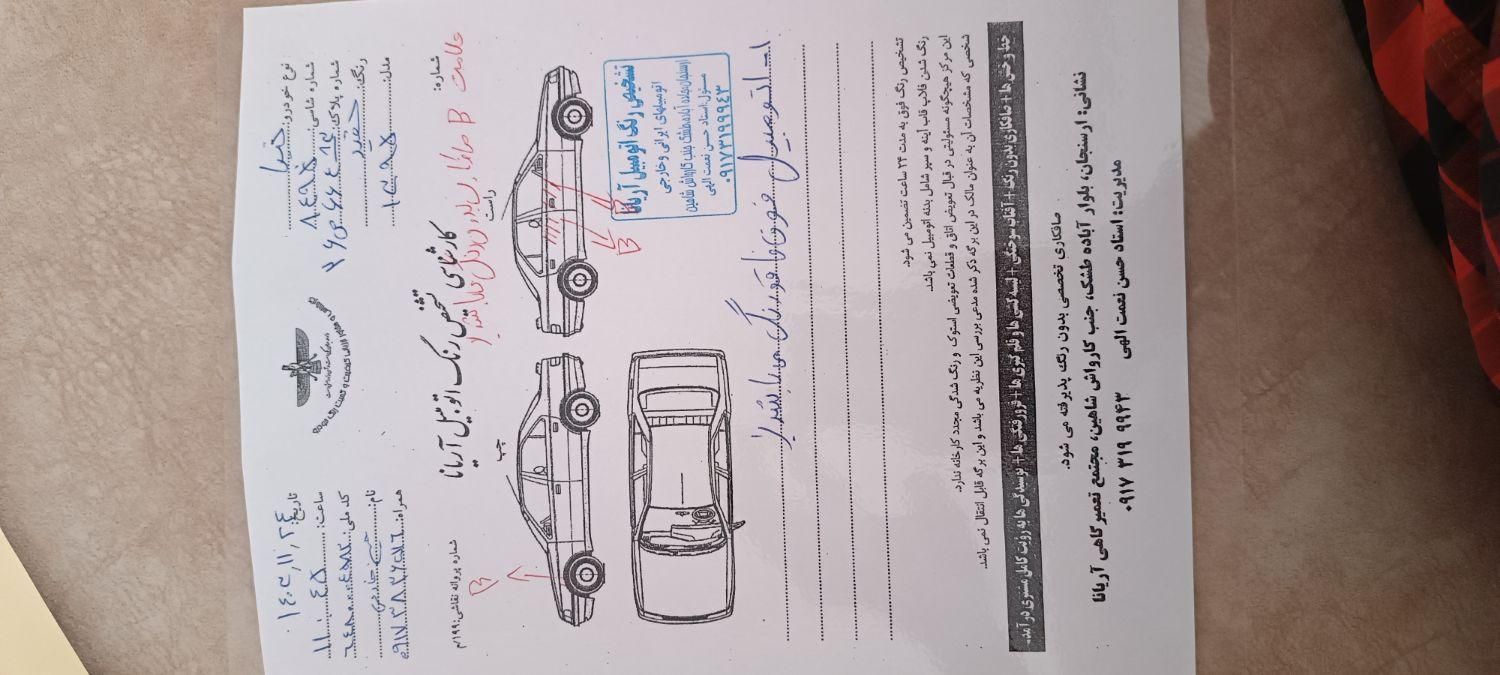 تاریخ: ۱۴۰۳/۱۱/۲۴
ساعت: ۱۱:۴۵
کد ملی:
نام:
همراه: ۰۹۱۷۳۸۳۶۲۷۶
نوع خودرو:
شماره شاسی: ۸۴۹۵
شماره پلاک:
رنگ: سفید
مدل: ۱۳۸۵
شماره:
کارشناسی تشخیص رنگ اتومبیل آریانا
شماره پروانه نقاشی: ۱۹۹/م
علامت B صافکاری بدون رنگ میباشد
چپ
راست
B
B
B
تشخیص رنگ اتومبیل آریانا
اتومبیلهای ایرانی و خارجی
ارسنجان جاده آباده طشک جنب کارواش شاهین
مسئول: استاد حسن نعمت الهی
۰۹۱۷۳۱۹۹۹۴۳
اتومبیل فوق فاقد رنگ می باشد
تشخیص رنگ فوق به مدت ۲۴ ساعت تضمین می شود.
رنگ شدن قلاب قاب آینه و سپر شامل بدنه اتومبیل نمی باشد.
این مرکز هیچگونه مسئولیتی در قبال تعویض اتاق و قطعات تعویضی استوک و رنگ شدگی مجدد کارخانه ندارد.
شخصی که مشخصات آن به عنوان مالک در این برگه ذکر شده مدعی بررسی این نظریه می باشد و این برگه قابل انتقال نمی باشد.
خط و خش ها + صافکاری بدون رنگ + آفتاب سوختگی + لیسه گیری ها و قلم گیری ها + فرورفتگی ها + پوسیدگی ها به رویت کامل مشتری در آمد.
صافکاری تخصصی بدون رنگ پذیرفته می شود.
نشانی: ارسنجان، بلوار آباده طشک، جنب کارواش شاهین، مجتمع تعمیرگاهی آریانا
مدیریت: استاد حسن نعمت الهی ۰۹۱۷ ۳۱۹ ۹۹۴۳